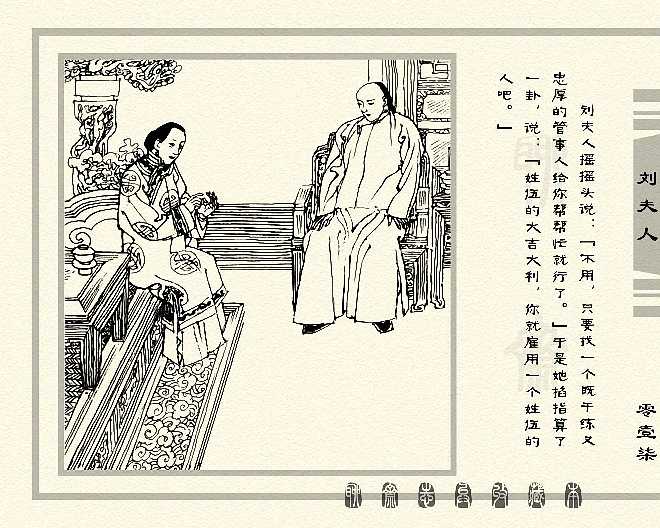 刘夫人摇摇头说：「不用，只要找一个既干练又
忠厚的管事人给你帮帮忙就行了。」于是她掐指算了
一卦，说：「姓伍的大吉大利，你就雇用一个姓伍的
人吧。」
刘夫人
零壹柒
聊斋志异
藏本